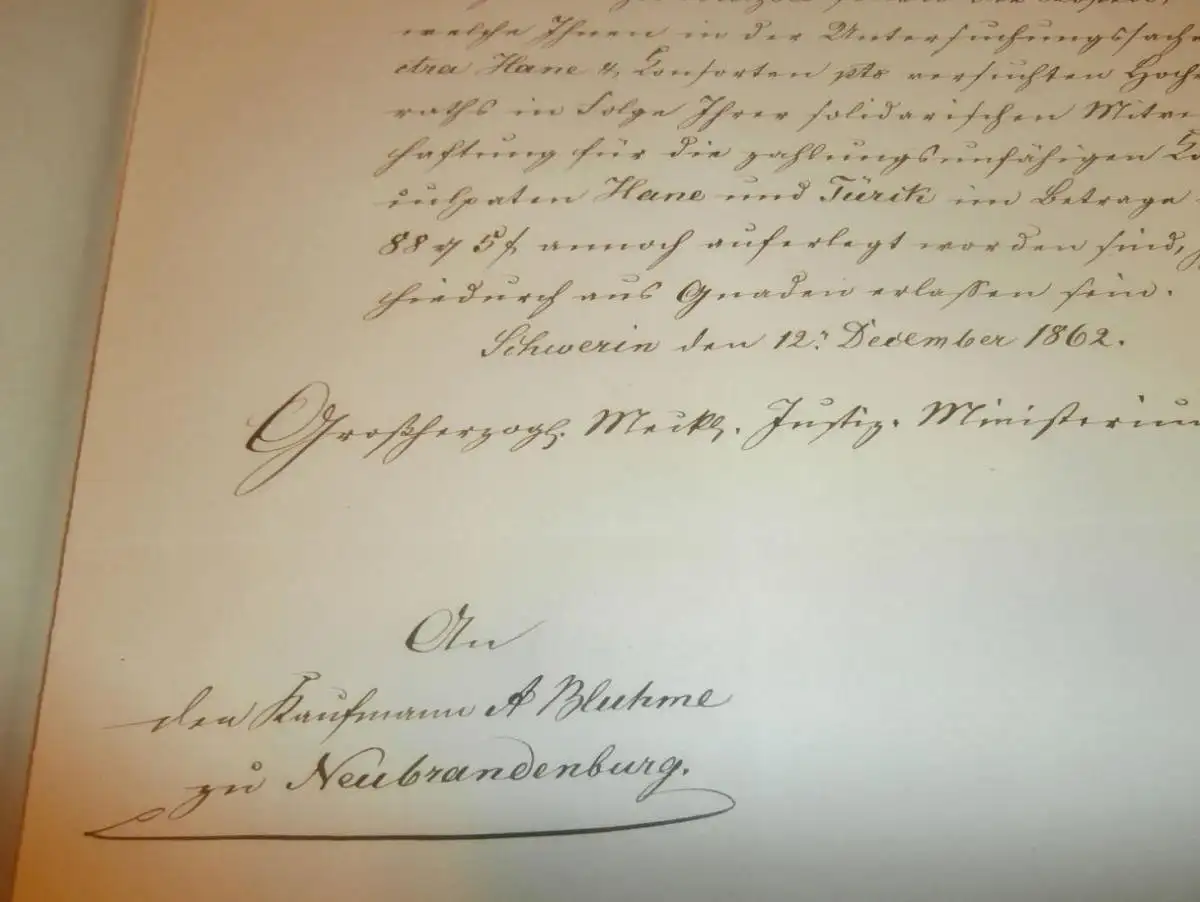 welche Ihnen in der Untersuchungssache
ctra Hane & Consorten pto versuchten Hochver
raths in Folge Ihrer solidarischen Mitver
haftung für die zahlungsunfähigen Co
inculpaten Hane und Türck im Betrage
88 5 annoch auferlegt worden sind,
hiedurch aus Gnaden erlassen sein.
Schwerin den 12. December 1862.
Großherzogl. Meckl. Justiz-Ministerium
An
den Kaufmann A Bluhme
zu Neubrandenburg.